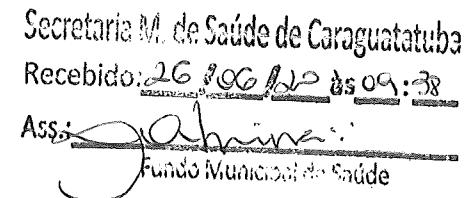 Secretaria M. de Saúde de Caraguatatuba
Recebido: 26/06/20 às 09:38
Ass.:
Fundo Municipal de Saúde